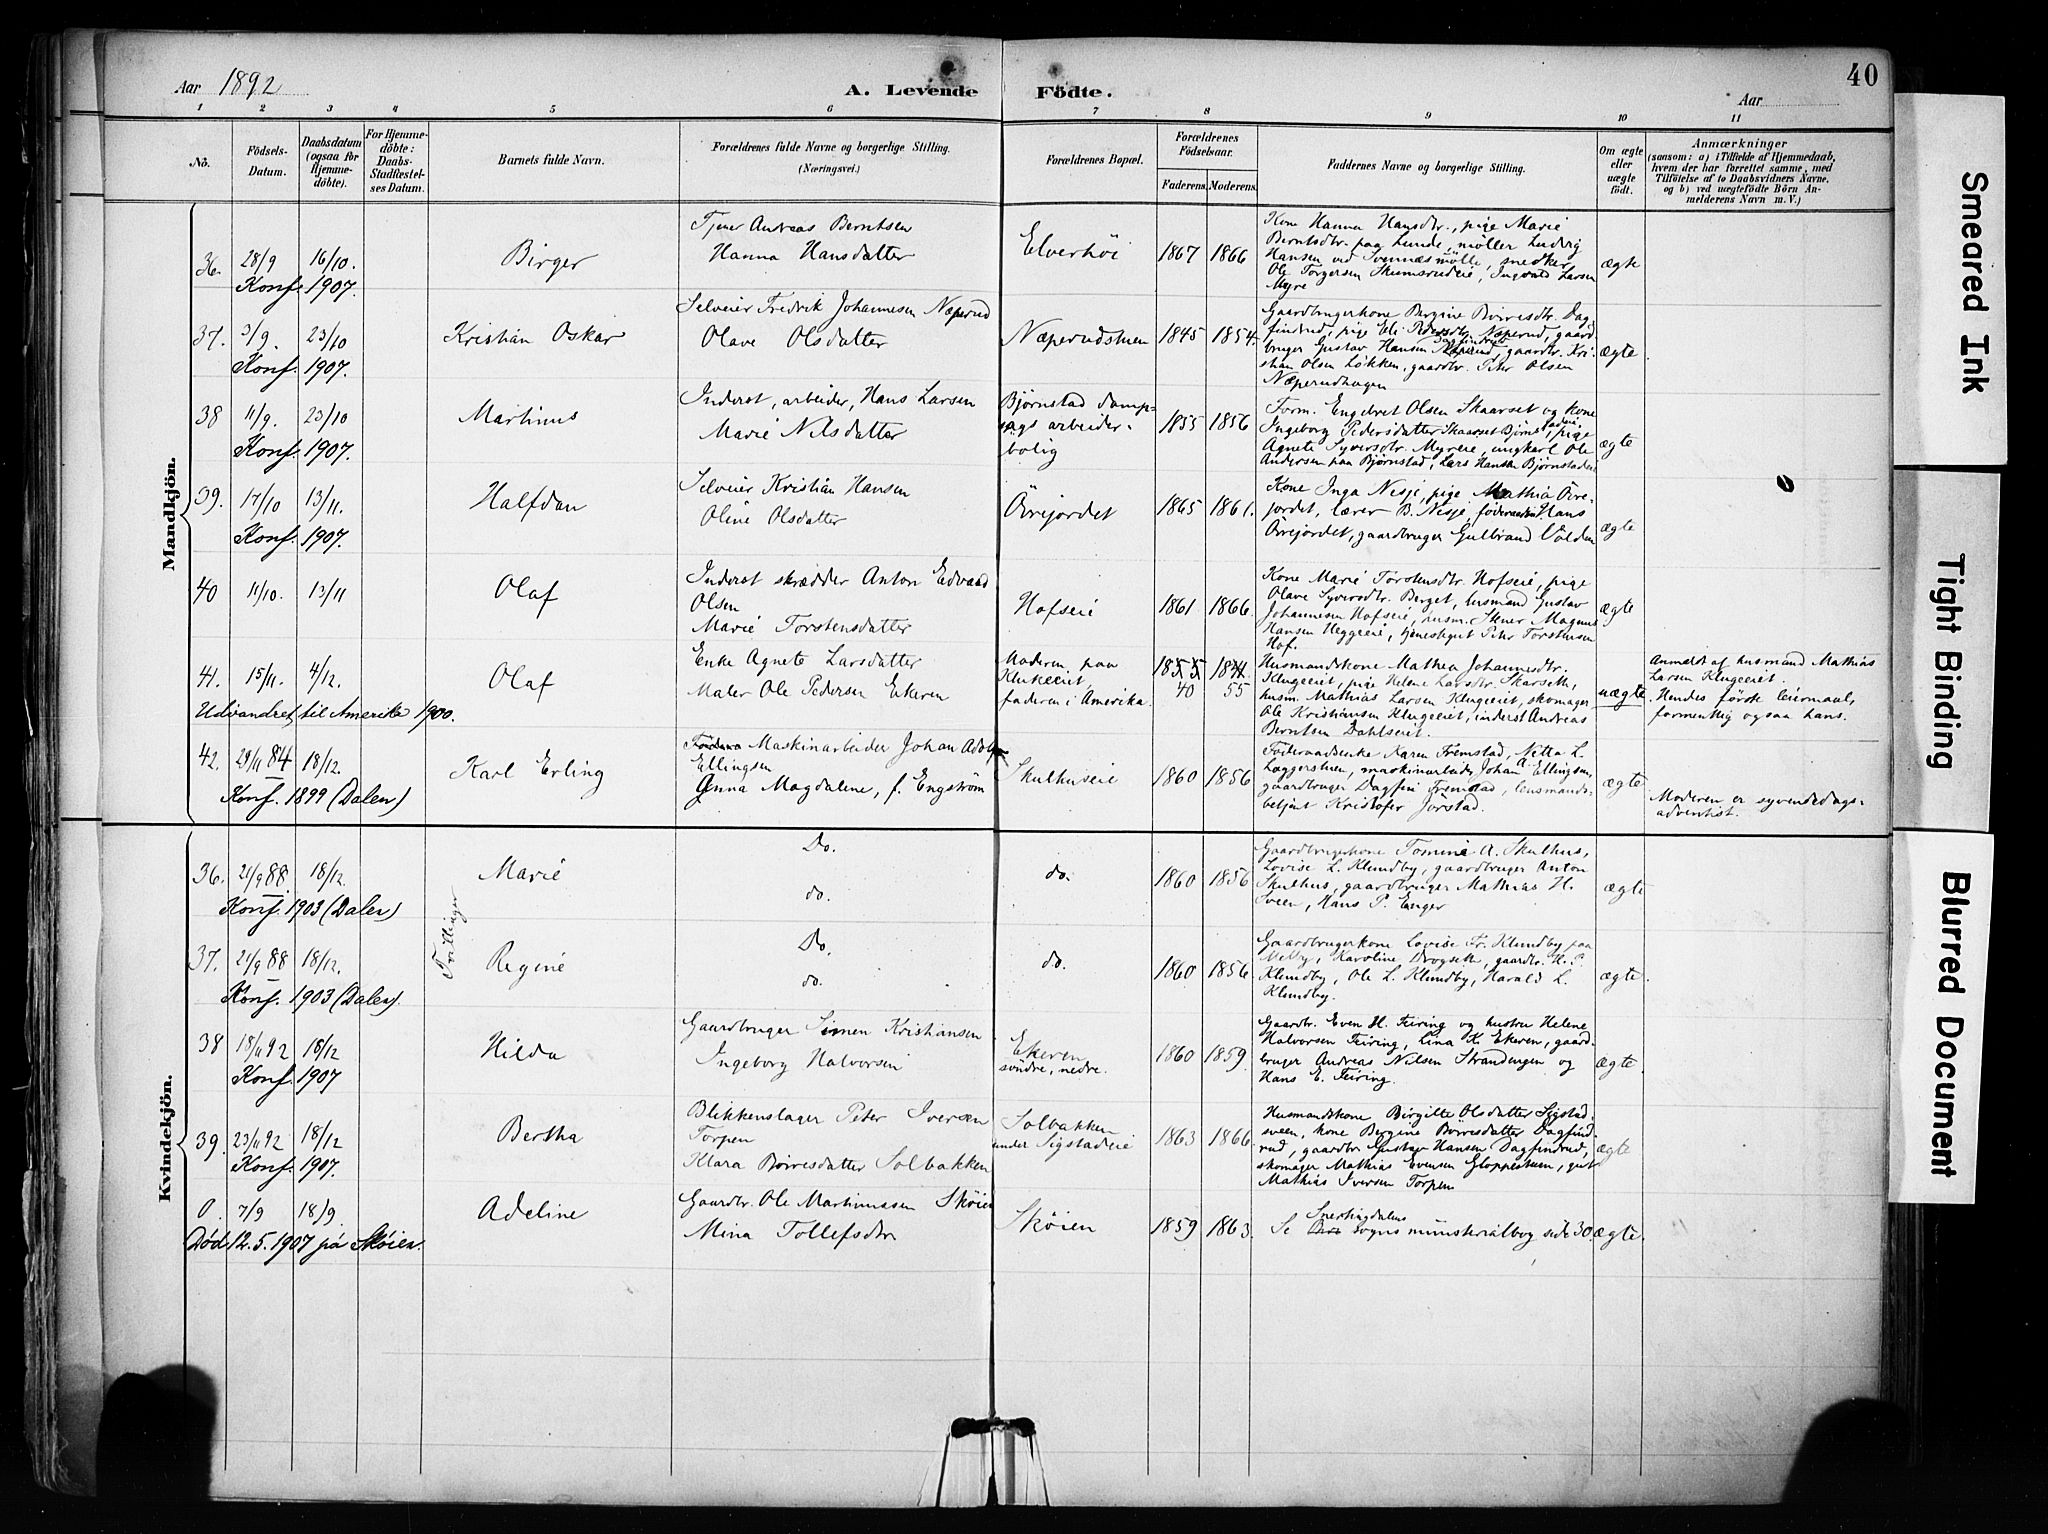 Aar 1892
A. Levende Födte.
Aar
40
1 2 3 4 5 6 7 8 9 10 11
No.
Födsels-Datum.
Daabsdatum (ogsaa for Hjemmedöbte).
For Hjemmedöbte: Daabs-Stadfæstelses Datum.
Barnets fulde Navn.
Forældrenes fulde Navne og borgerlige Stilling. (Næringsvei.)
Forældrenes Bopæl.
Forældrenes Födselsaar.
Faderens. Moderens.
Faddernes Navne og borgerlige Stilling.
Om ægte eller uægte födt.
Anmærkninger
(saasom: a) i Tilfælde af Hjemmedaab,
hvem der har forrettet samme, med
Tilföielse af to Daabsvidners Navne,
og b) ved uægtefödte Börn Anmelderens Navn m. V.)
Mandkjön.
36. 28/9 16/10. Birger
Konf. 1907.
Tjener Andreas Berntsen
Hanna Hansdatter
Elverhöi 1867 1866
Kone Hanna Hansdtr., pige Marie
Berntsdtr. paa Lunde, möller Ludvig
Hansen ved Svennæsmölle, snedker
Ole Torgersen Skumsrudeie, Ingvald Larsen
Myre
ægte
37. 3/9. 23/10 Kristian Oskar
Konf. 1907.
Selveier Fredrik Johannesen Næperud
Olave Olsdatter
Næperudstuen 1845 1854.
Gaardbrugerkone Bergine Börresdtr. Dag-
findrud, pige Eli Pedersdtr. Næperud, gaard-
bruger Gustav Hansen Dagfindrud, gaardbr. Kri-
stian Olsen Løkken, gaardbr. Peter Olsen
Næperudhagen
ægte
38 11/9. 23/10 Martinus
Konf. 1907.
Inderst, arbeider, Hans Larsen
Marie Nilsdatter
Bjørnstad damp-
sags arbeider-
bolig
1855 1856
Form. Engebret Olsen Skaarset og kone
Ingeborg Pedersdatter Skaarset Bjørnstadeie, pige
Agnete Syversdtr. Myreie, ungkarl Ole
Andersen paa Bjørnstad, Lars Hansen Bjørnstadeie
ægte
39. 17/10 13/11. Halfdan
Konf. 1907.
Selveier Kristian Hansen
Oline Olsdatter
Övrejordet 1865 1861.
Kone Inga Nesje, pige Mathia Övre-
jordet, lærer B. Nesje, föderaadsm Hans
Övrejordet, gaardbruger Gulbrand Volden
ægte
40 11/10. 13/11 Olaf
Inderst skrædder Anton Edvard
Olsen
Marie Torstensdatter
Hofseie 1861 1866.
Kone Marie Torstensdtr. Hofseie, pige
Olave Syversdtr. Berget, husmand Gustav
Johannesen Hofseie, husm. Stener Magnus
Hansen Heggeeie, tjenestegut Peter Torstensen
Hof.
ægte
41. 15/11. 4/12. Olaf
Udvandret til Amerika 1900.
Enke Agnete Larsdatter
Maler Ole Pedersen Ekeren
Moderen paa
Klukeeiet,
faderen i Amerika.
1855 1841
40 55
Husmandskone Mathea Johannesdtr.
Klugeeiet, pige Helene Larsdtr. Skarseth,
husm. Mathias Larsen Klugeeiet, skomager
Ole Kristiansen Klugeeiet, inderst Andreas
Berntsen Dahlseiet.
uægte
Anmeldt af husmand Mathias
Larsen Klugeeiet.
Hendes første leiermaal,
formentlig ogsaa hans.
42. 29/11 84 18/12. Karl Erling
Konf. 1899 (Dalen)
Maskinarbeider Johan Adolf
Ellingsen
Anna Magdalene, f. Engström
Skulhuseie 1860 1856
Föderaadsenke Karen Fremstad, Netta L.
Laggerstuen, maskinarbeider Johan A. Ellingsen,
gaardbruger Dagfin Fremstad, lensmands-
betjent Kristofer Jörstad.
ægte
Moderen er syvendedags-
adventist.
Kvindekjön.
36. 21/9 88 18/12. Marie
Konf. 1903 (Dalen)
Trillinger
Do.
do.
do. 1860 1856
Gaardbrugerkone Tomine A. Skulhus,
Lovise L. Klundby, gaardbruger Anton
Skulhus, gaardbruger Mathias H.
Sveen, Hans P. Enger
ægte
37. 21/9 88 18/12. Regine
Konf. 1903 (Dalen).
Do.
do.
do. 1860 1856.
Gaardbrugerkone Lovise Fr. Klundby paa
Melby, Karoline Drogseth, gaardbr. H. P.
Klundby, Ole L. Klundby, Harald L.
Klundby.
ægte.
38 18/11 92 18/12 Hilda
Konf. 1907
Gaardbruger Simen Kristiansen
Ingeborg Halvorsen
Ekeren
söndre, nedre.
1860 1859.
Gaardbr. Even H. Feiring og hustru Helene
Halvorsen Feiring, Lina K. Ekeren, gaard-
bruger Andreas Nilsen Strandengen og
Hans E. Feiring.
ægte.
39. 23/11 92 18/12 Bertha
Konf. 1907.
Blikkenslager Peter Iversen
Torpen
Klara Börresdatter Solbakken
Solbakken
under Sigstadeie
1863 1866.
Husmandskone Birgitte Olsdatter Sigstad-
sveen, kone Bergine Börresdatter Dagfind-
rud, gaardbr Gustav Hansen Dagfindrud,
skomager Mathias Evensen Gloppestuen, gut
Mathias Iversen Torpen
ægte
0. 7/9 18/9. Adeline
Död 12.5.1907 på Skøien.
Gaardbr. Ole Martinussen Skøien
Mina Tollefsdtr
Skøien 1859 1863.
Se Snertingdalens sogns ministerialbog side 30.
ægte.
Smeared Ink
Tight Binding
Blurred Document